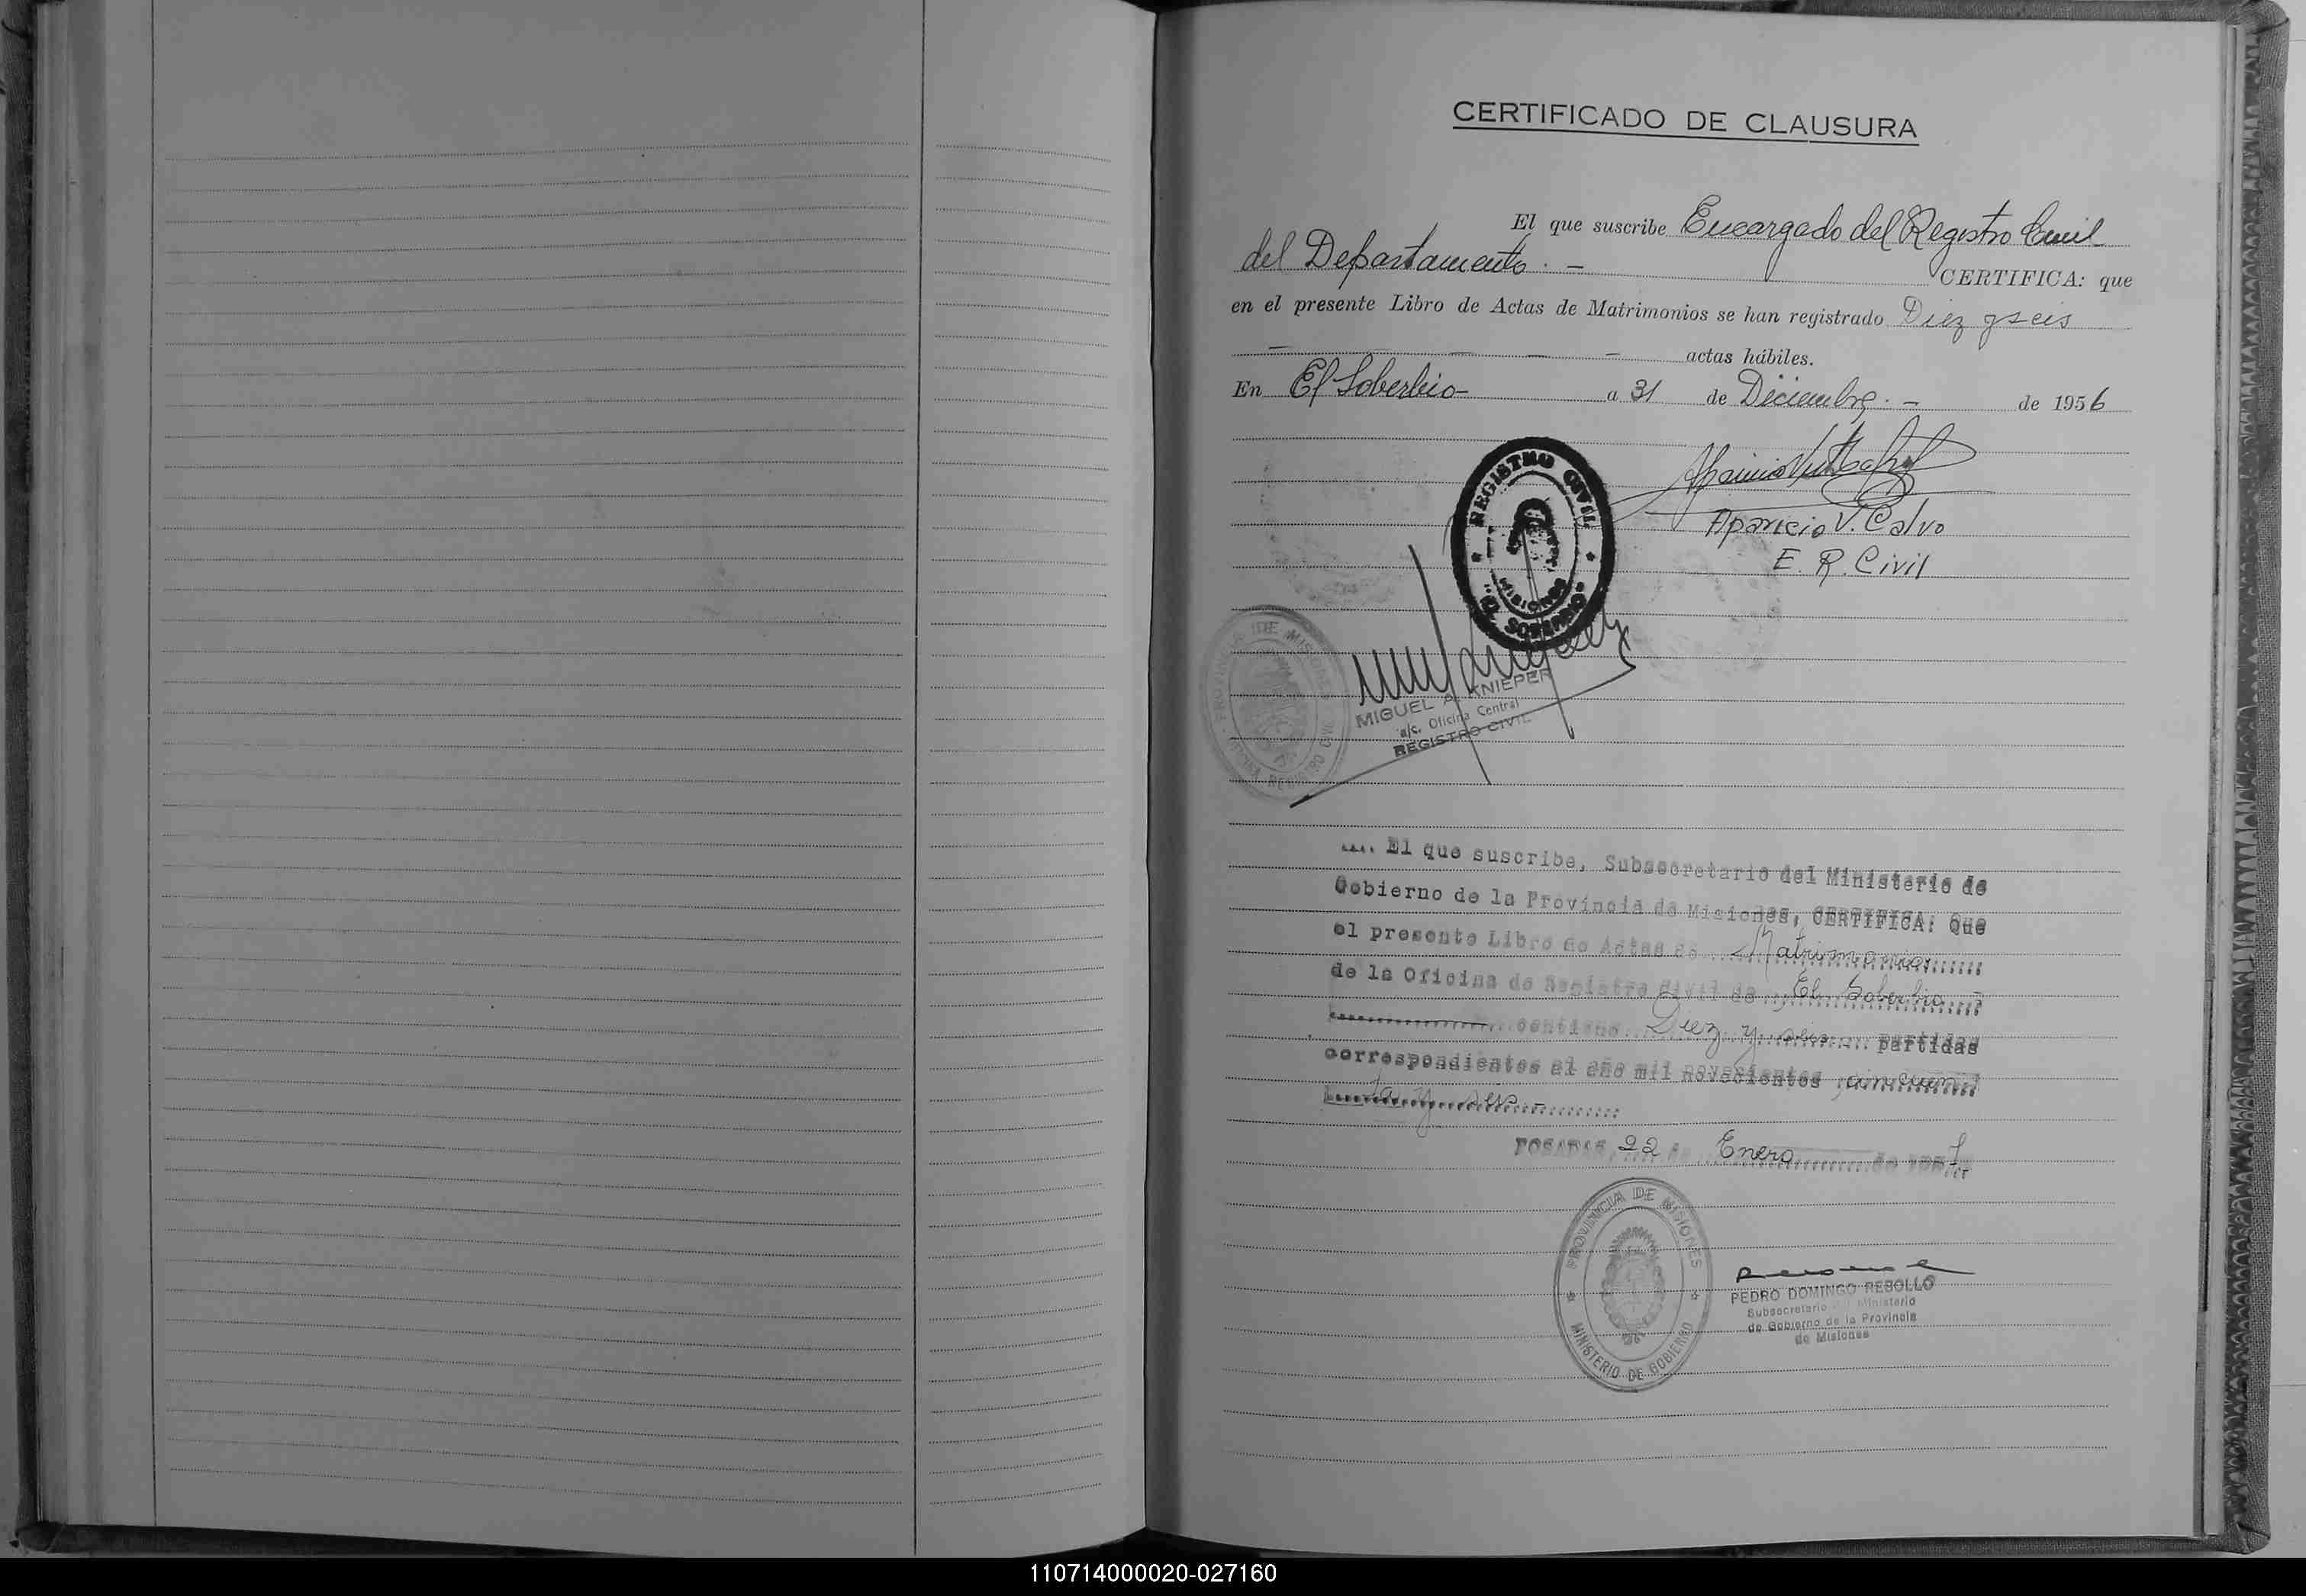 CERTIFICADO DE CLAUSURA
El que suscribe Encargado del Registro Civil
del Departamento. - CERTIFICA: que
en el presente Libro de Actas de Matrimonios se han registrado Diez y seis
- - - - - actas hábiles.
En El Soberbio - a 31 de Diciembre. - de 1956
Aparicio V. Calvo
E. R. Civil
REGISTRO CIVIL
MISIONES
"EL SOBERBIO"
PROVINCIA DE MISIONES
REGISTRO CIVIL
MIGUEL A. KNIEPER
a/c. Oficina Central
REGISTRO CIVIL
.... El que suscribe, Subsecretario del Ministerio de
Gobierno de la Provincia de Misiones, CERTIFICA: Que
el presente Libro de Actas de Matrimonios
de la Oficina de Registro Civil de El Soberbio -
contiene Diez y seis partidas
correspondientes al año mil novecientos cincuen
ta y seis -
POSADAS, 22 de Enero de 1957
PROVINCIA DE MISIONES
MINISTERIO DE GOBIERNO
PEDRO DOMINGO REBOLLO
Subsecretario Ministerio
de Gobierno de la Provincia
de Misiones
110714000020-027160